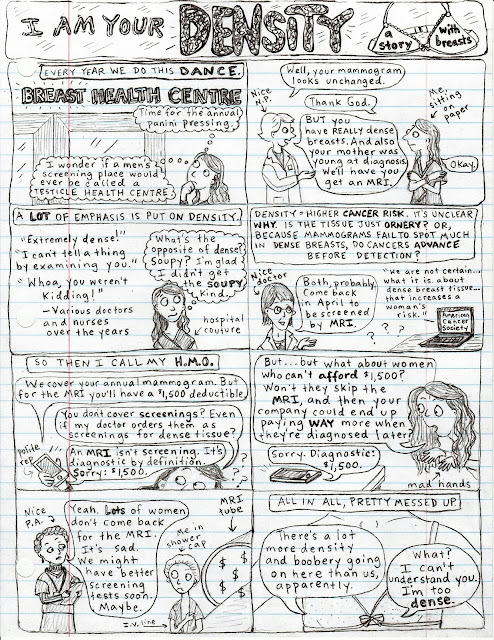 I AM YOUR
DENSITY
a
story
with
breasts
EVERY YEAR WE DO THIS DANCE.
BREAST HEALTH CENTRE
Time for the annual
panini pressing.
I wonder if a men's
screening place would
ever be called a
TESTICLE HEALTH CENTRE.
Well, your mammogram
looks unchanged.
Nice
N.P.
Thank God.
Me,
sitting
on
paper
BUT you
have REALLY dense
breasts. And also
your mother was
young at diagnosis.
We'll have you
get an MRI.
Okay.
A LOT OF EMPHASIS IS PUT ON DENSITY.
"Extremely dense!"
"I can't tell a thing
by examining you."
"Whoa, you weren't
kidding!"
- Various doctors
and nurses
over the years
What's the
opposite of dense?
SOUPY? I'm glad
I didn't get
the SOUPY
kind.
hospital
couture
DENSITY = HIGHER CANCER RISK. IT'S UNCLEAR
WHY. IS THE TISSUE JUST ORNERY? OR,
BECAUSE MAMMOGRAMS FAIL TO SPOT MUCH
IN DENSE BREASTS, DO CANCERS ADVANCE
BEFORE DETECTION?
Nice
doctor
Both, probably.
Come back
in April to
be screened
by MRI.
"We are not certain...
what it is about
dense breast tissue...
that increases a
woman's
risk."
? ? ?
American
Cancer
Society
SO THEN I CALL MY H.M.O.
We cover your annual mammogram. But
for the MRI you'll have a $1,500 deductible.
You don't cover screenings? Even
if my doctor orders them as
screenings for dense tissue?
polite
rep
An MRI isn't screening. It's
diagnostic by definition.
Sorry: $1,500.
? ? ?
But...but what about women
who can't afford $1,500?
Won't they skip the
MRI, and then your
company could end up
paying WAY more when
they're diagnosed later?
Sorry. Diagnostic:
$1,500.
mad hands
Nice
P.A.
Yeah. Lots of women
don't come back
for the MRI.
It's sad.
We might
have better
screening
tests soon.
Maybe.
Me in
shower
cap
MRI
tube
I.V. line
$ $ $ $
ALL IN ALL, PRETTY MESSED UP.
There's a lot
more density
and boobery going
on here than us,
apparently.
What?
I can't
understand you.
I'm too
dense.